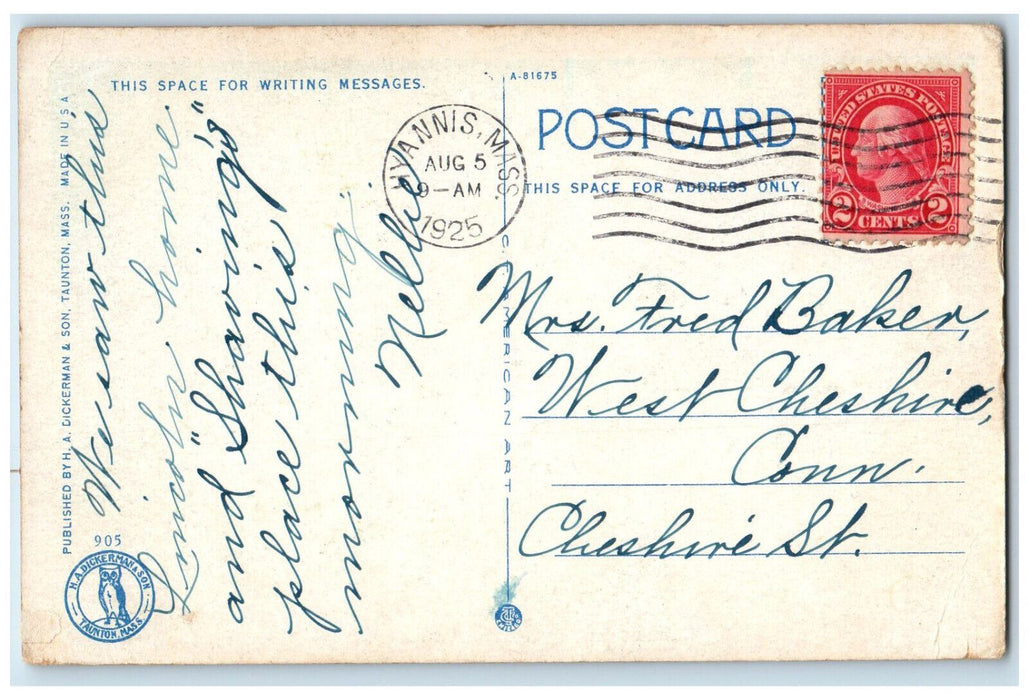 THIS SPACE FOR WRITING MESSAGES.
A-81675
POST CARD
THIS SPACE FOR ADDRESS ONLY.
HYANNIS, MASS.
AUG 5
9-AM
1925
UNITED STATES POSTAGE
2 CENTS 2
PUBLISHED BY H. A. DICKERMAN & SON, TAUNTON, MASS. MADE IN U.S.A.
905
H.A. DICKERMAN & SON
TAUNTON, MASS.
C.T. AMERICAN ART
We saw this
Lincoln home
and "Shavings"
place this
morning.
Nellie
Mrs. Fred Baker,
West Cheshire,
Conn.
Cheshire St.